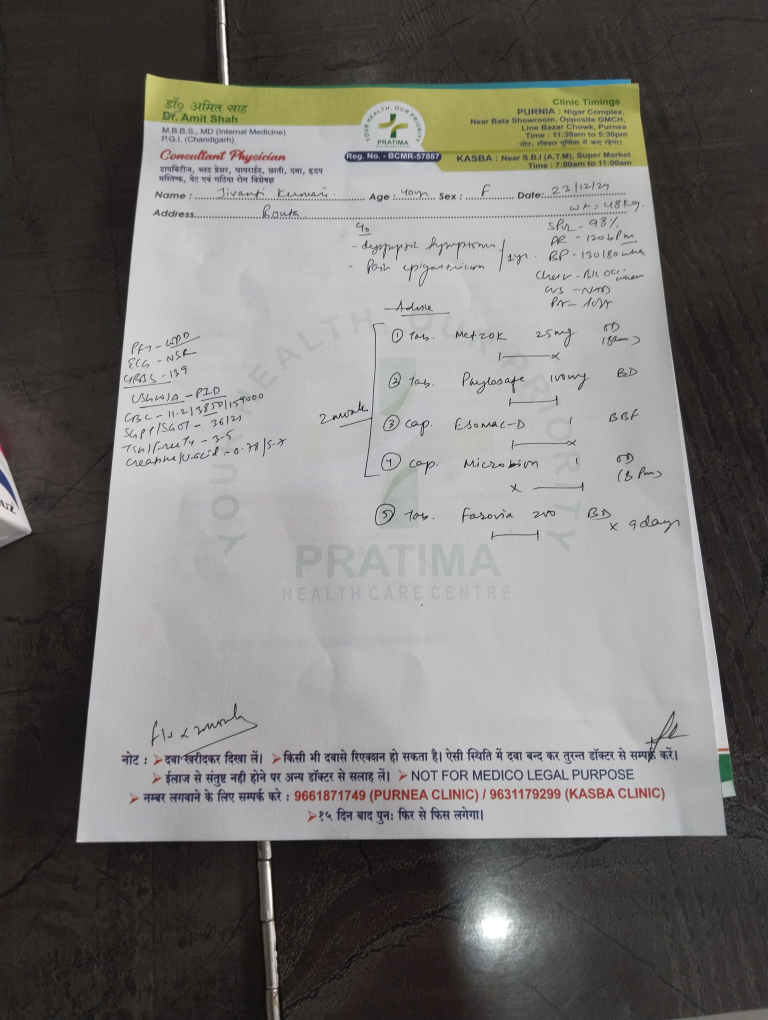 डॉ० अमित साह
Dr. Amit Shah
M.B.B.S., MD (Internal Medicine)
P.G.I. (Chandigarh)
Consultant Physician
डायबिटीज, ब्लड प्रेशर, थायराईड, छाती, दमा, हृदय
मस्तिष्क, पेट एवं गठिया रोग विशेषज्ञ
YOUR HEALTH, OUR PRIORITY
PRATIMA
Reg. No. - BCMR-57887
Clinic Timings
PURNIA : Nigar Complex,
Near Bata Showroom, Opposite GMCH,
Line Bazar Chowk, Purnea
Time : 11:30am to 5:30pm
नोट: रविवार पूर्णिया में बन्द रहेगा।
KASBA : Near S.B.I (A.T.M), Super Market
Time : 7:00am to 11:00am
Name : Jivanti Kumari Age : 40yr Sex : F Date: 23/12/24
Address
wt = 48 kg.
SPO2 - 98%
PR - 120 bpm
BP - 130/80
CVS - NAD
c/o
- dyspeptic symptoms
- Pain epigastrium
1yr.
Advise
① Tab. Metzok 25mg OD
(8am)
② Tab. 100mg BD
③ Cap. Esomac-D 1 BBF
④ Cap. Microbion 1 OD
(8 Pm)
⑤ Tab. Farovia 200 BD
x 9 days
2 month
ECG - NSR
GRBS - 139
USG W/A - PID
CBC - 11.2/3850/159000
SGPT/SGOT - 36/21
TSH/Free T4 - 3.5
Creatine/U.acid - 0.78/5.7
YOUR HEALTH, OUR PRIORITY
PRATIMA
HEALTH CARE CENTRE
F/U x 2 month
नोट : ➤दवा खरीदकर दिखा लें। ➤किसी भी दवासे रिएक्शन हो सकता है। ऐसी स्थिति में दवा बन्द कर तुरन्त डॉक्टर से सम्पर्क करें।
➤ईलाज से संतुष्ट नही होने पर अन्य डॉक्टर से सलाह लें। ➤NOT FOR MEDICO LEGAL PURPOSE
➤नम्बर लगवाने के लिए सम्पर्क करे : 9661871749 (PURNEA CLINIC) / 9631179299 (KASBA CLINIC)
➤१५ दिन बाद पुनः फिर से फिस लगेगा।